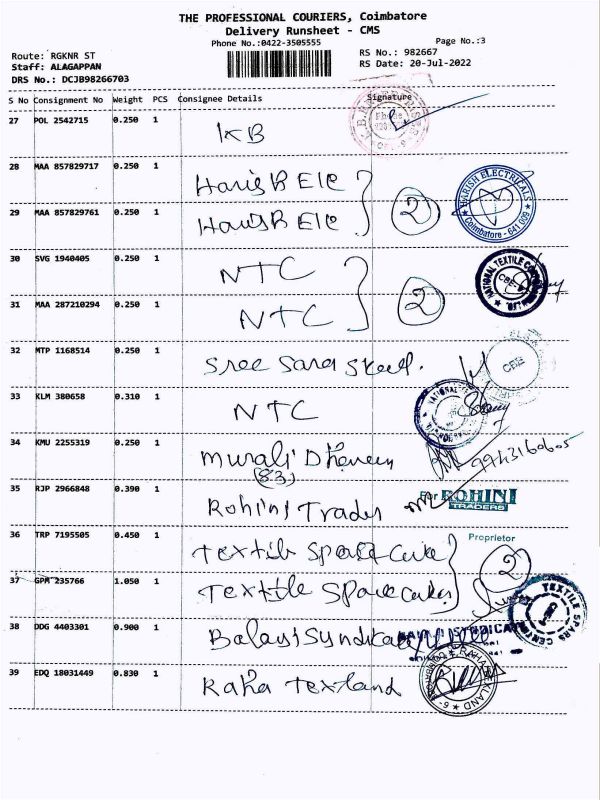 THE PROFESSIONAL COURIERS, Coimbatore
Delivery Runsheet - CMS
Phone No.:0422-3505555
Page No.:3
Route: RGKNR ST
RS No.: 982667
Staff: ALAGAPPAN
RS Date: 20-Jul-2022
DRS No.: DCJB98266703
S No Consignment No Weight PCS Consignee Details Signature
27 POL 2542715 0.250 1 KB
28 MAA 857829717 0.250 1 Harish Ele
HARISH ELECTRICALS
Coimbatore - 641 009
29 MAA 857829761 0.250 1 Harish Ele 2
30 SVG 1940405 0.250 1 NTC
NATIONAL TEXTILE
CBE
31 MAA 287210294 0.250 1 NTC 2
32 MTP 1168514 0.250 1 Sree Sara Steel.
CBE
33 KLM 380658 0.310 1 NTC
34 KMU 2255319 0.250 1 Murali
(83)
35 RJP 2966848 0.390 1 Rohini Trades
For ROHINI
TRADERS
Proprietor
36 TRP 7195505 0.450 1 Textile
37 GPM 235766 1.050 1 Textile 2
TEXTILE SPARS CENTRE
38 DDG 4403301 0.900 1 Balaji Syndicate
39 EDQ 18031449 0.830 1 Raha Texland